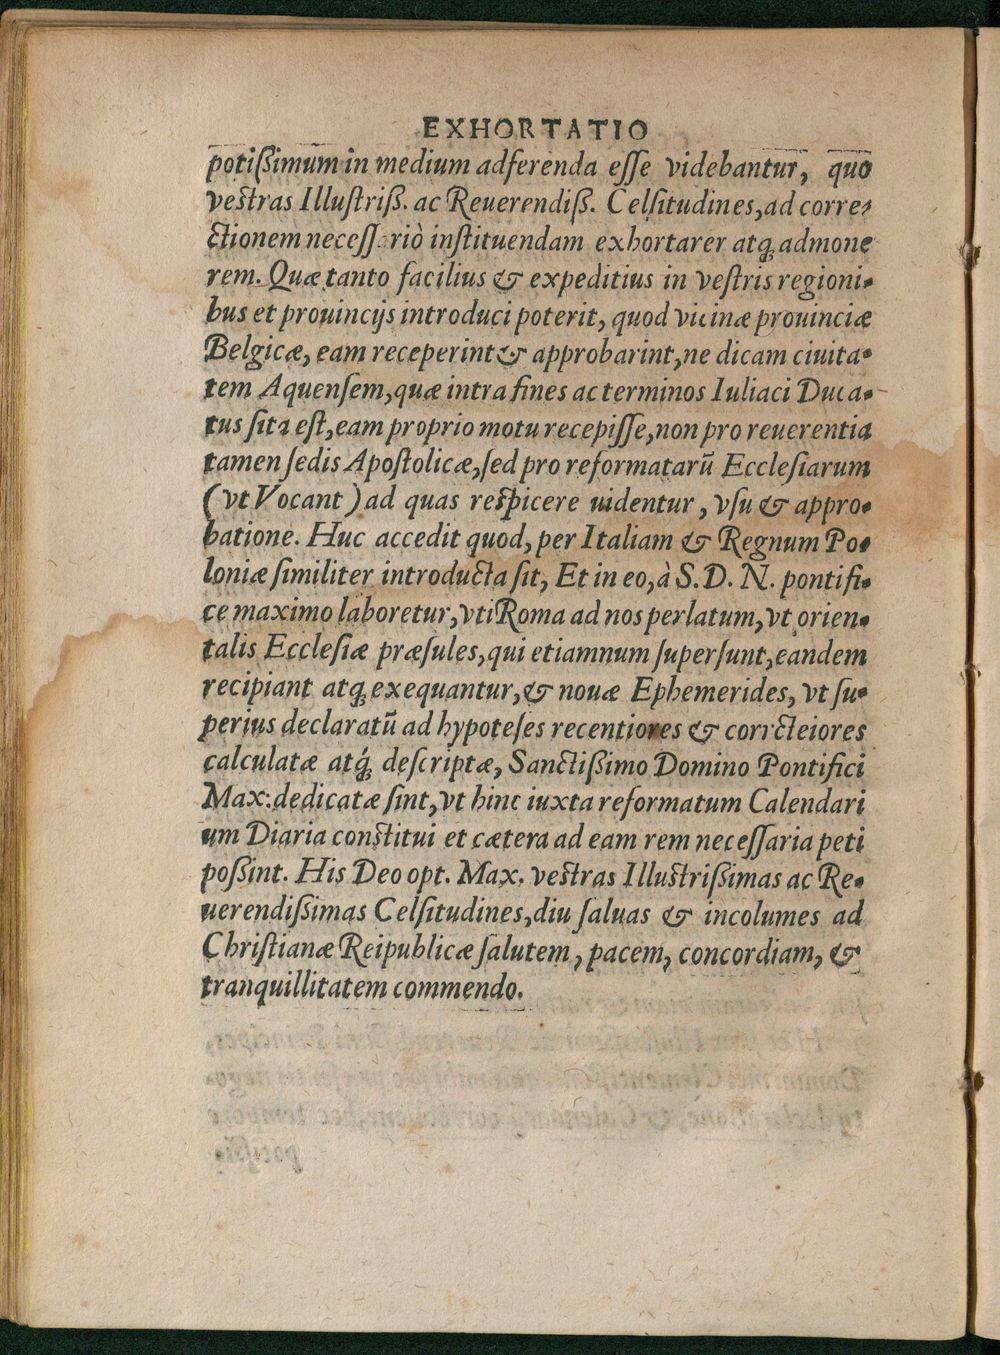 EXHORTATIO
potiſsimum in medium adferenda eſſe videbantur, quo
veſtras Illuſtriſs. ac Reuerendiſs. Celſitudines, ad corre-
ctionem neceſſariò inſtituendam exhortarer atq; admone
rem. Quæ tanto facilius & expeditius in veſtris regioni-
bus et prouincijs introduci poterit, quod vicinæ prouinciæ
Belgicæ, eam receperint & approbarint, ne dicam ciuita-
tem Aquenſem, quæ intra fines ac terminos Iuliaci Duca-
tus ſita eſt, eam proprio motu recepiſſe, non pro reuerentia
tamen ſedis Apoſtolicæ, ſed pro reformatarũ Eccleſiarum
(vt Vocant) ad quas reſpicere uidentur, vſu & appro-
batione. Huc accedit quod, per Italiam & Regnum Po-
loniæ ſimiliter introducta ſit, Et in eo, à S. D. N. pontifi-
ce maximo laboretur, vti Roma ad nos perlatum, vt orien-
talis Eccleſiæ præſules, qui etiamnum ſuperſunt, eandem
recipiant atq; exequantur, & nouæ Ephemerides, vt ſu-
perius declaratũ ad hypoteſes recentiores & corrcteiores
calculatæ atq́; deſcriptæ, Sanctiſsimo Domino Pontifici
Max: dedicatæ ſint, vt hinc iuxta reformatum Calendari
um Diaria conſtitui et cætera ad eam rem neceſſaria peti
poſsint. His Deo opt. Max. veſtras Illuſtriſsimas ac Re-
uerendiſsimas Celſitudines, diu ſaluas & incolumes ad
Chriſtianæ Reipublicæ ſalutem, pacem, concordiam, &
tranquillitatem commendo.